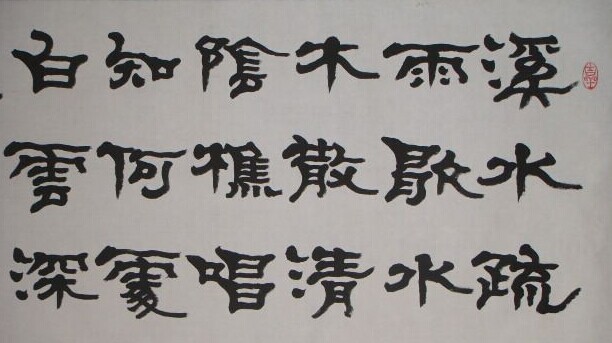 溪水疏
雨歇水
木散清
陰樵唱
知何處
白雲深